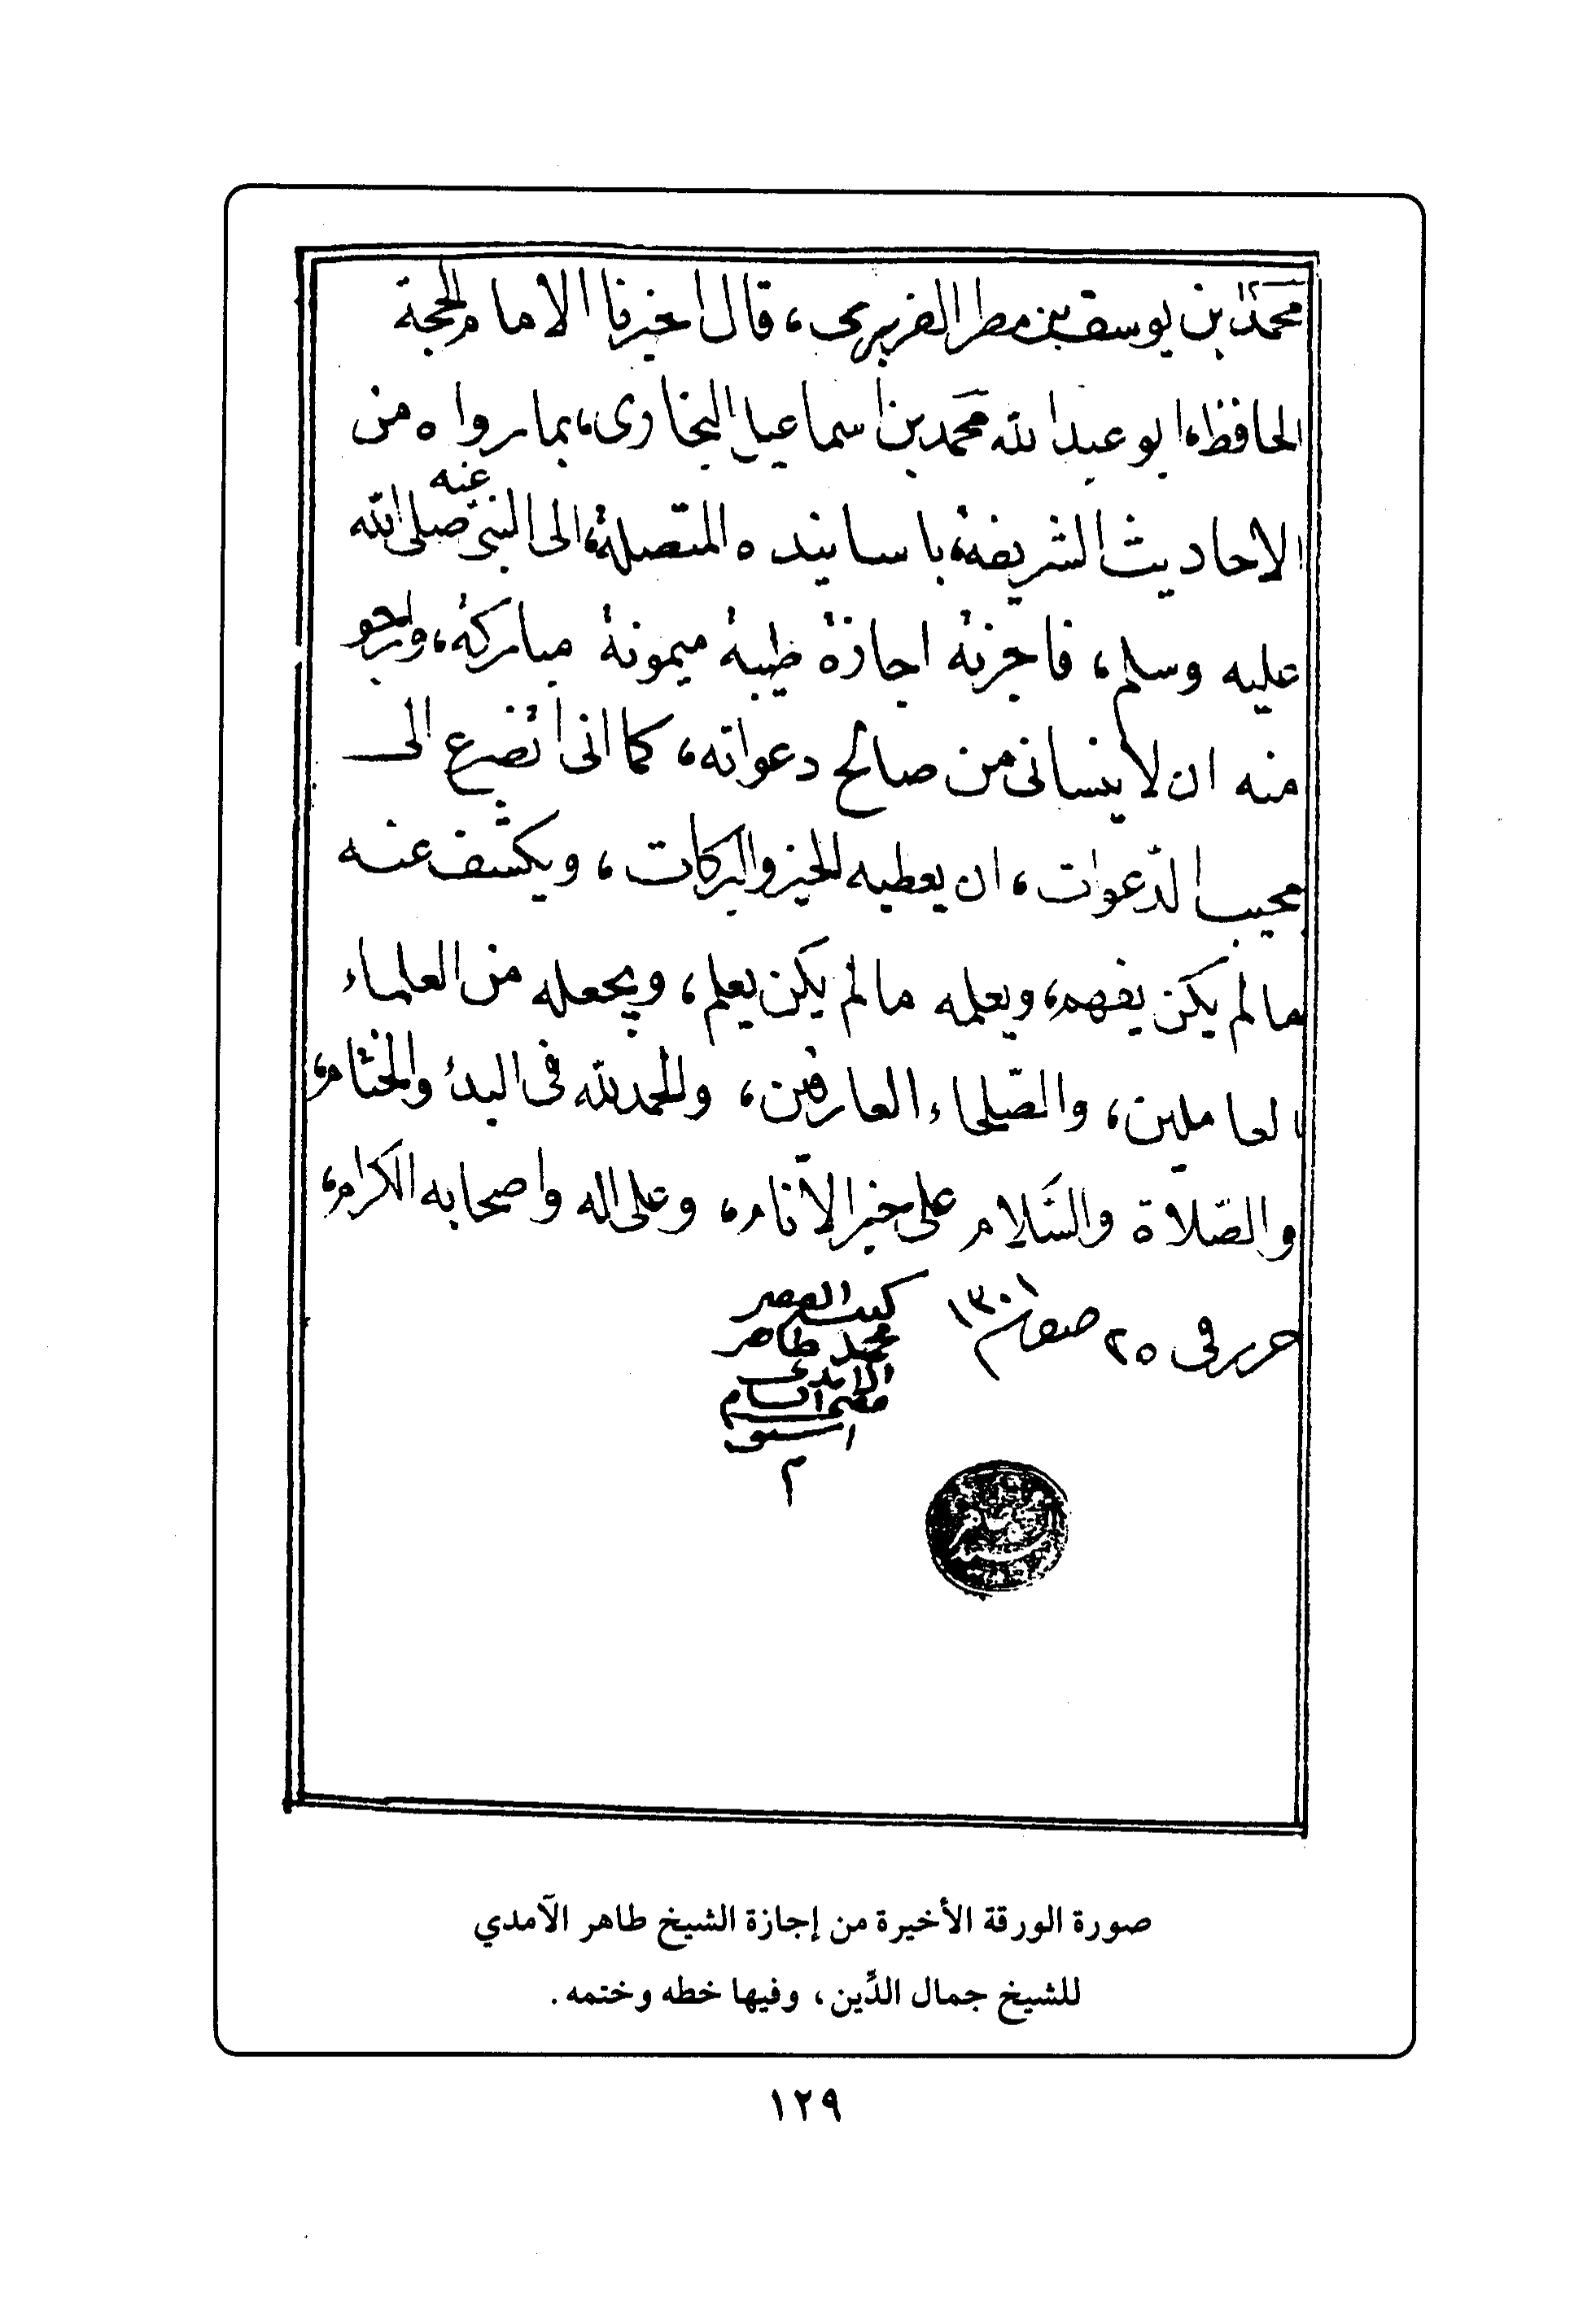 محمد بن يوسف بن مطر الفربري، قال اخبرنا الامام الحجة
الحافظ، ابو عبد الله محمد بن اسماعيل البخاري، بما رواه من
الاحاديث الشريفة، باسانيده المتصلة، الى النبي صلى الله
عليه وسلم، فاجزته اجازة طيبة ميمونة مباركة، وارجو
منه ان لا ينساني من صالح دعواته، كما اني اتضرع الى
مجيب الدّعوات، ان يعطيه الخير والبركات، ويكشف عنه
ما لم يكن يفهم، ويعلمه ما لم يكن يعلم، ويجعله من العلماء
العاملين، والصّلحاء العارفين، والحمد لله في البدء والختام،
والصّلاة والسّلام على خير الانام، وعلى اله واصحابه الكرام،
حرر في ٢٥ صفر ١٣٠١
محمد طاهر
الامدي
صورة الورقة الأخيرة من إجازة الشيخ طاهر الآمدي
للشيخ جمال الدِّين، وفيها خطه وختمه.
١٢٩